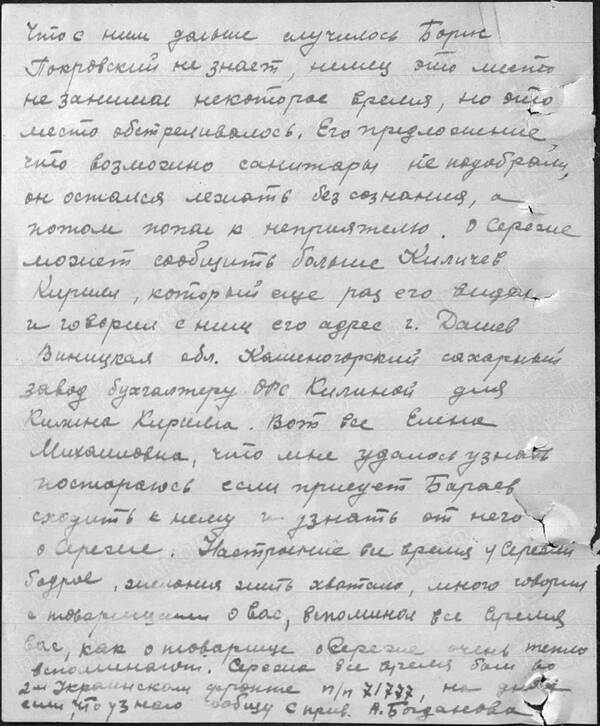 Что с ним дальше случилось Борис
Покровский не знает, немец это место
не занимал некоторое время, но это
место обстреливалось. Его предложение,
что возможно санитары не подобрали,
он остался лежать без сознания, а
потом попал к неприятелю. О Сереже
может сообщить больше Киличев
Кирилл, который еще раз его видел
и говорил с ним его адрес г. Дашев
Виницкая обл. Кошеногорский сахарный
завод бухгалтеру ОРС Килиной для
Килина Кирилла. Вот все Елена
Михайловна, что мне удалось узнать
постараюсь если приедет Бараев
сходить к нему и узнать от него
о Сереже. Настроение все время у Сережи
бодрое, желания жить хватало, много говорил
с товарищами о Вас, вспоминал все время
вас, как о товарище о Сереже очень тепло
вспоминают. Сережа все время был во
2м Украинском фронте п/п 71777, на днях
если, что узнаю сообщу с прив. А. Богданова